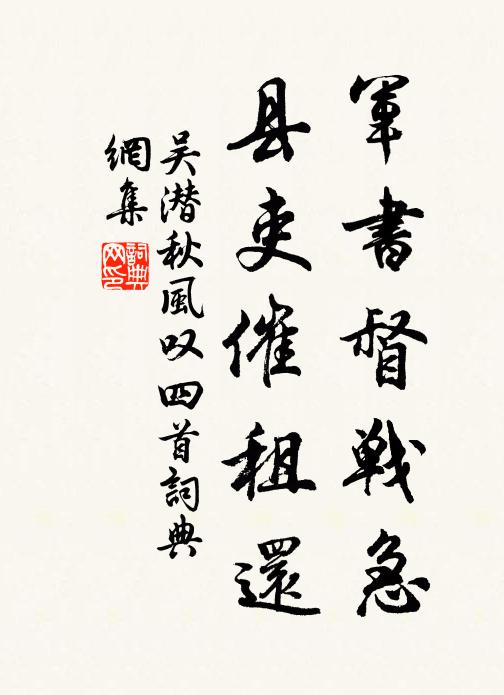 軍書督戦急
县吏催租還
吴潛秋風叹四首詞典
網集
詞典
网印